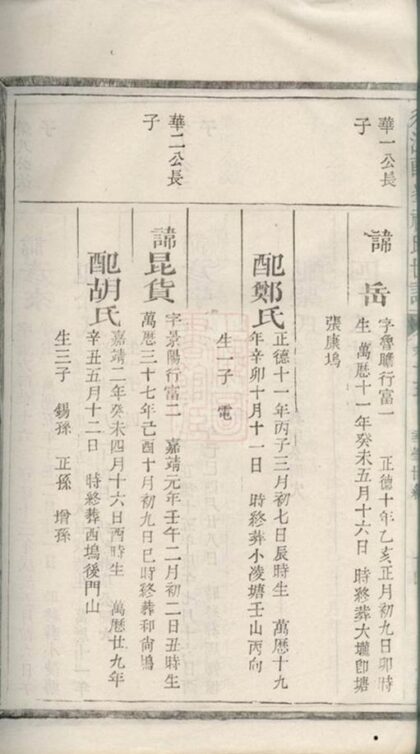 華一公長
子
諱岳
字魯瞻行富一　正德十年乙亥正月初九日卯時
生　萬曆十一年癸未五月十六日　時終葬大壠卽塘
張康塢
配鄭氏
正德十一年丙子三月初七日辰時生　萬曆十九
年辛卯十月十一日　時終葬小凌塘壬山丙向
生一子　電
華二公長
子
諱昆貨
字景陽行富二　嘉靖元年壬午二月初二日丑時生
萬曆三十七年己酉十月初九日巳時終葬和尙塢
配胡氏
嘉靖二年癸未四月十六日酉時生　萬曆廿九年
辛丑五月十二日　時終葬西塢後門山
生三子　錫孫　正孫　增孫